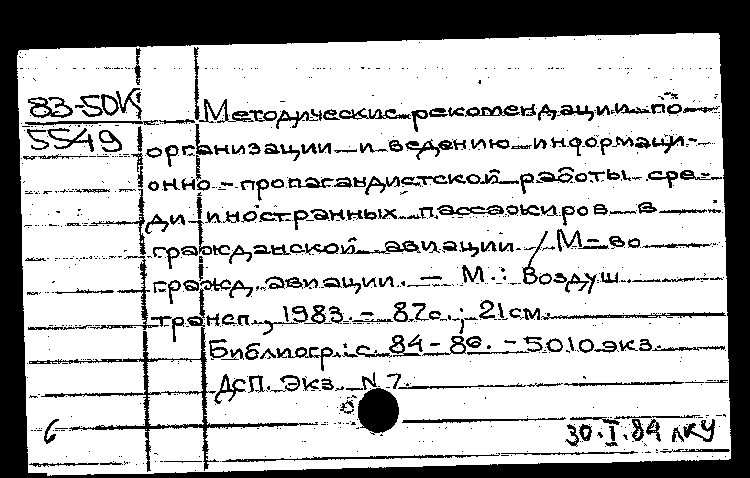 83-50К
5549
Методические рекомендации по
организации и ведению информаци-
онно-пропагандистской работы сре-
ди иностранных пассажиров в
гражданской авиации / М-во
гражд. авиации. - М.: Воздуш.
трансп., 1983. - 87с.; 21см.
Библиогр.: с. 84-86. - 5010 экз.
ДСП. Экз. N 7.
6
30.I.84 лку